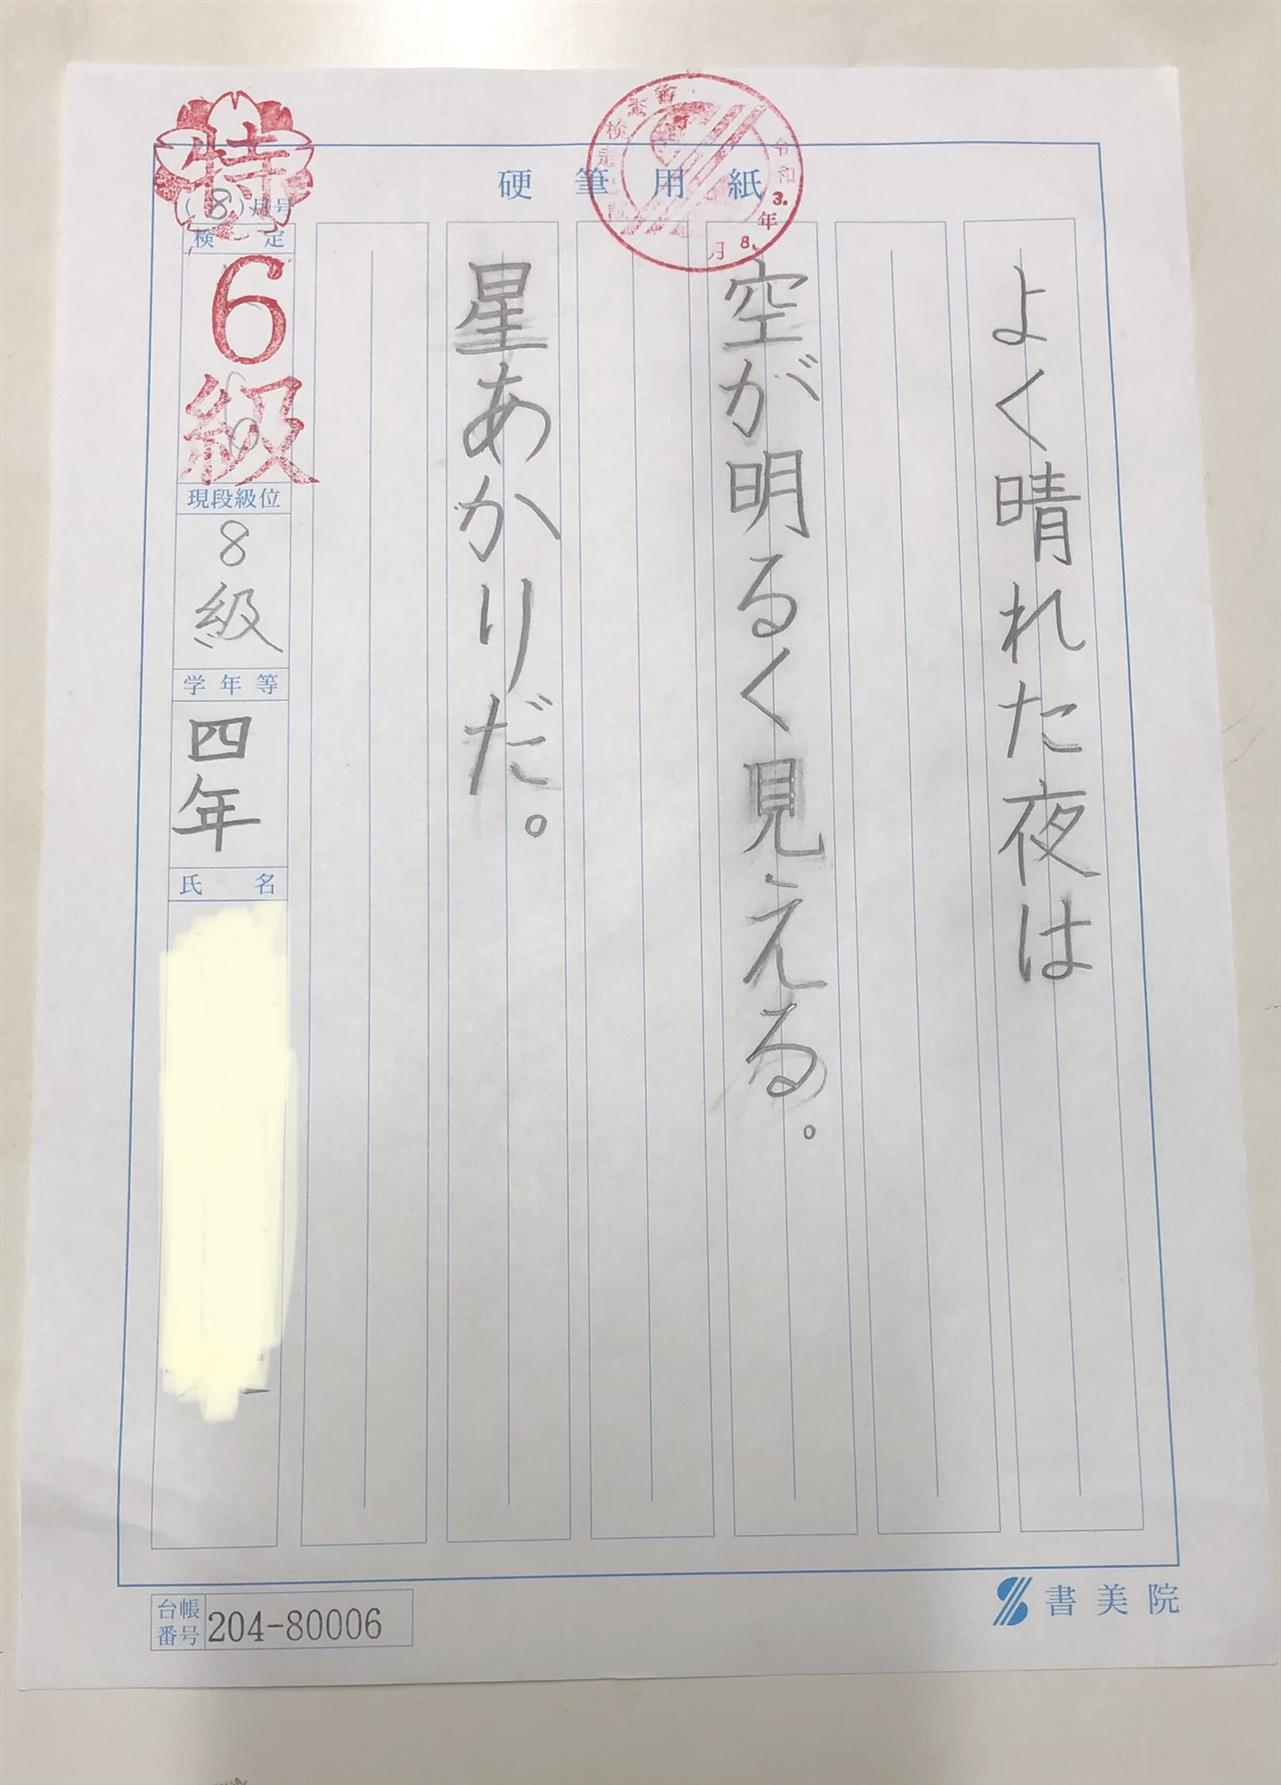 硬筆用紙
よく晴れた夜は
空が明るく見える。
星あかりだ。
特
(8)月号
検定
6級
現段級位
8級
学年等
四年
氏名
令和3.年8.月
台帳番号
204-80006
書美院